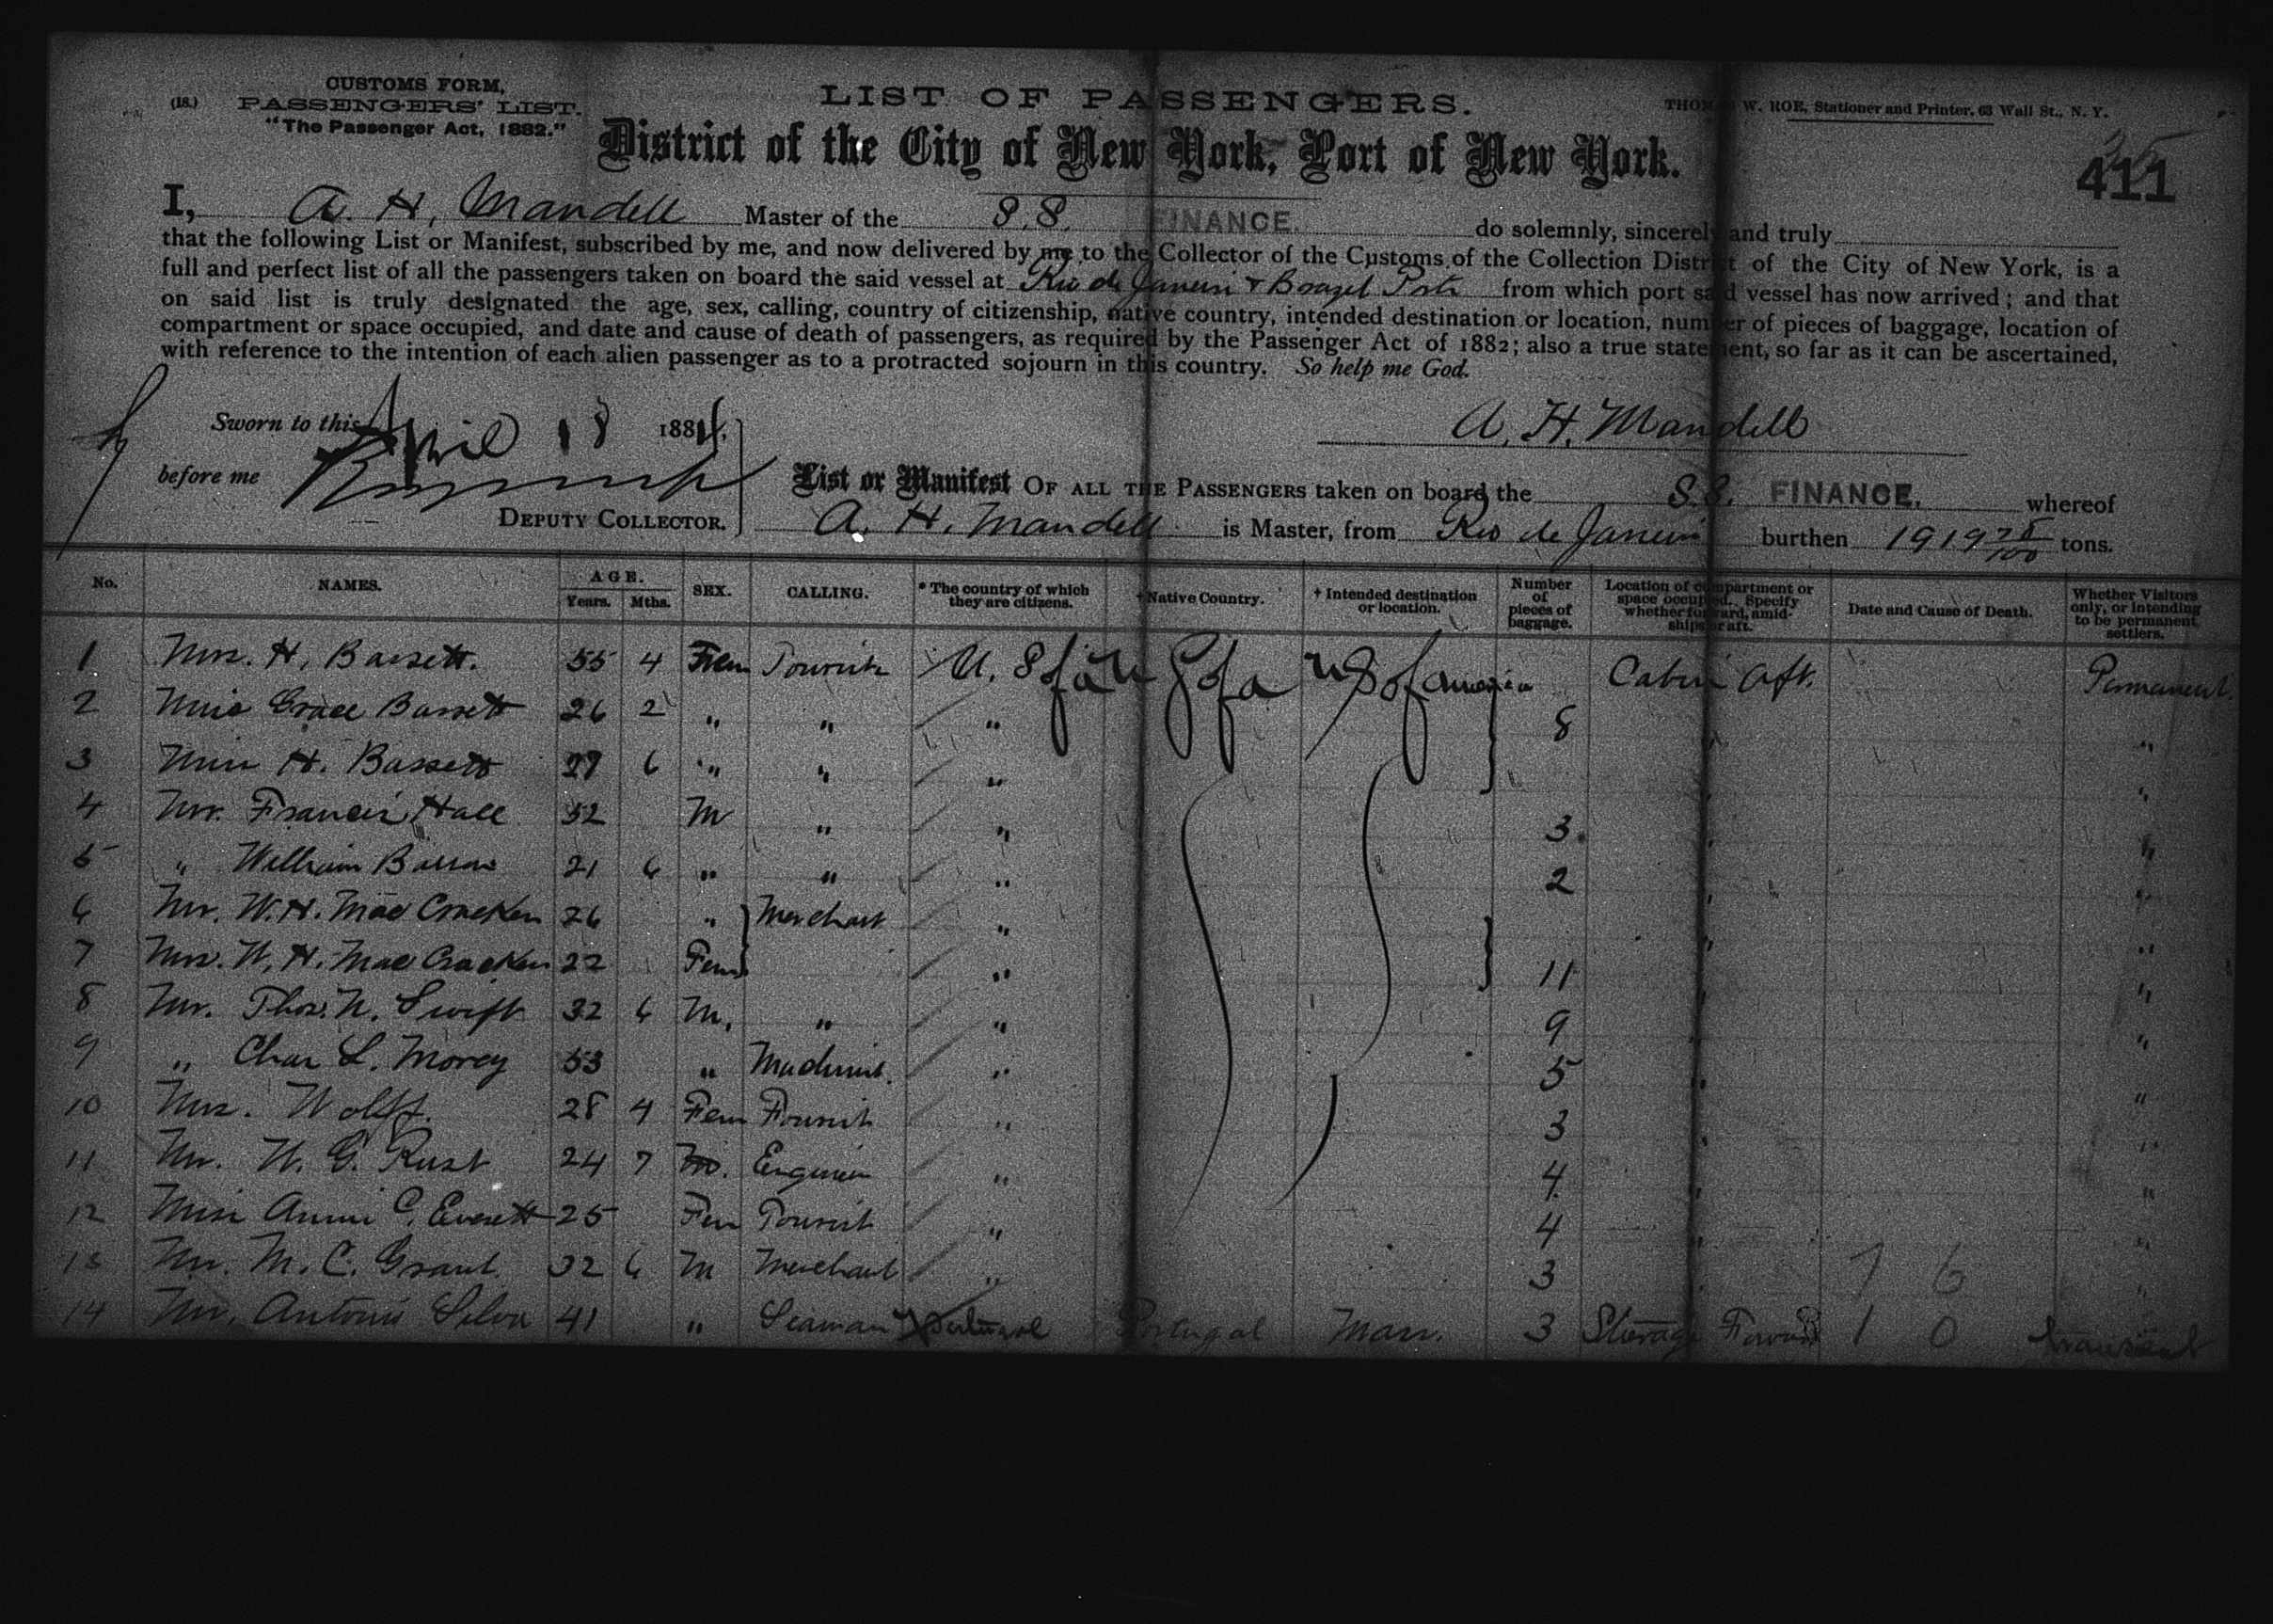 CUSTOMS FORM,
(18.) PASSENGERS' LIST.
"The Passenger Act, 1882."
LIST OF PASSENGERS.
W. ROE, Stationer and Printer, 63 Wall St., N. Y.
District of the City of New York, Port of New York.
411
I, A. H. Mandell Master of the S.S. FINANCE. do solemnly, sincerely and truly
that the following List or Manifest, subscribed by me, and now delivered by me to the Collector of the Customs of the Collection District of the City of New York, is a
full and perfect list of all the passengers taken on board the said vessel at Rio de Janeiro & Brazil Ports from which port said vessel has now arrived; and that
on said list is truly designated the age, sex, calling, country of citizenship, native country, intended destination or location, number of pieces of baggage, location of
compartment or space occupied, and date and cause of death of passengers, as required by the Passenger Act of 1882; also a true statement, so far as it can be ascertained,
with reference to the intention of each alien passenger as to a protracted sojourn in this country. So help me God.
A. H. Mandell
Sworn to this April 18 1884.
before me
DEPUTY COLLECTOR.
List or Manifest OF ALL THE PASSENGERS taken on board the S.S. FINANCE. whereof
A. H. Mandell is Master, from Rio de Janeiro burthen 1919 78/100 tons.
No. NAMES. AGE. Years. Mths. SEX. CALLING. * The country of which they are citizens. † Native Country. † Intended destination or location. Number of pieces of baggage. Location of compartment or space occupied. Specify whether forward, amidships or aft. Date and Cause of Death. Whether Visitors only, or intending to be permanent settlers.
1 Mrs. H. Bassett. 55 4 Fem Tourist U. S of a U S of a U S of America Cabin Aft. Permanent.
2 Miss Grace Bassett 26 2 " " " 8 "
3 Miss H. Bassett 29 6 " " " "
4 Mr. Francis Hall 52 M " " 3 "
5 " William 21 6 " " " 2 "
6 Mr. W. H. Mac Cracken 26 " Merchant " "
7 Mrs. W. H. Mac Cracken 22 Fem " 11 "
8 Mr. Thos. N. Swift 32 6 M. " " 9 "
9 " Chas L. Morey 53 " Machinist. " 5 "
10 Mrs. Wolff. 28 4 Fem Tourist " 3 "
11 Mr. W. G. Rust 24 7 M. Engineer " 4 "
12 Miss Annie C. Everett 25 Fem Tourist " 4 "
13 Mr. M. C. Grant. 32 6 M Merchant " 3 7 6 "
14 Mr. Antonio Silva 41 " Seaman Portugal Portugal Mass. 3 Steerage Forward 1 0 transient